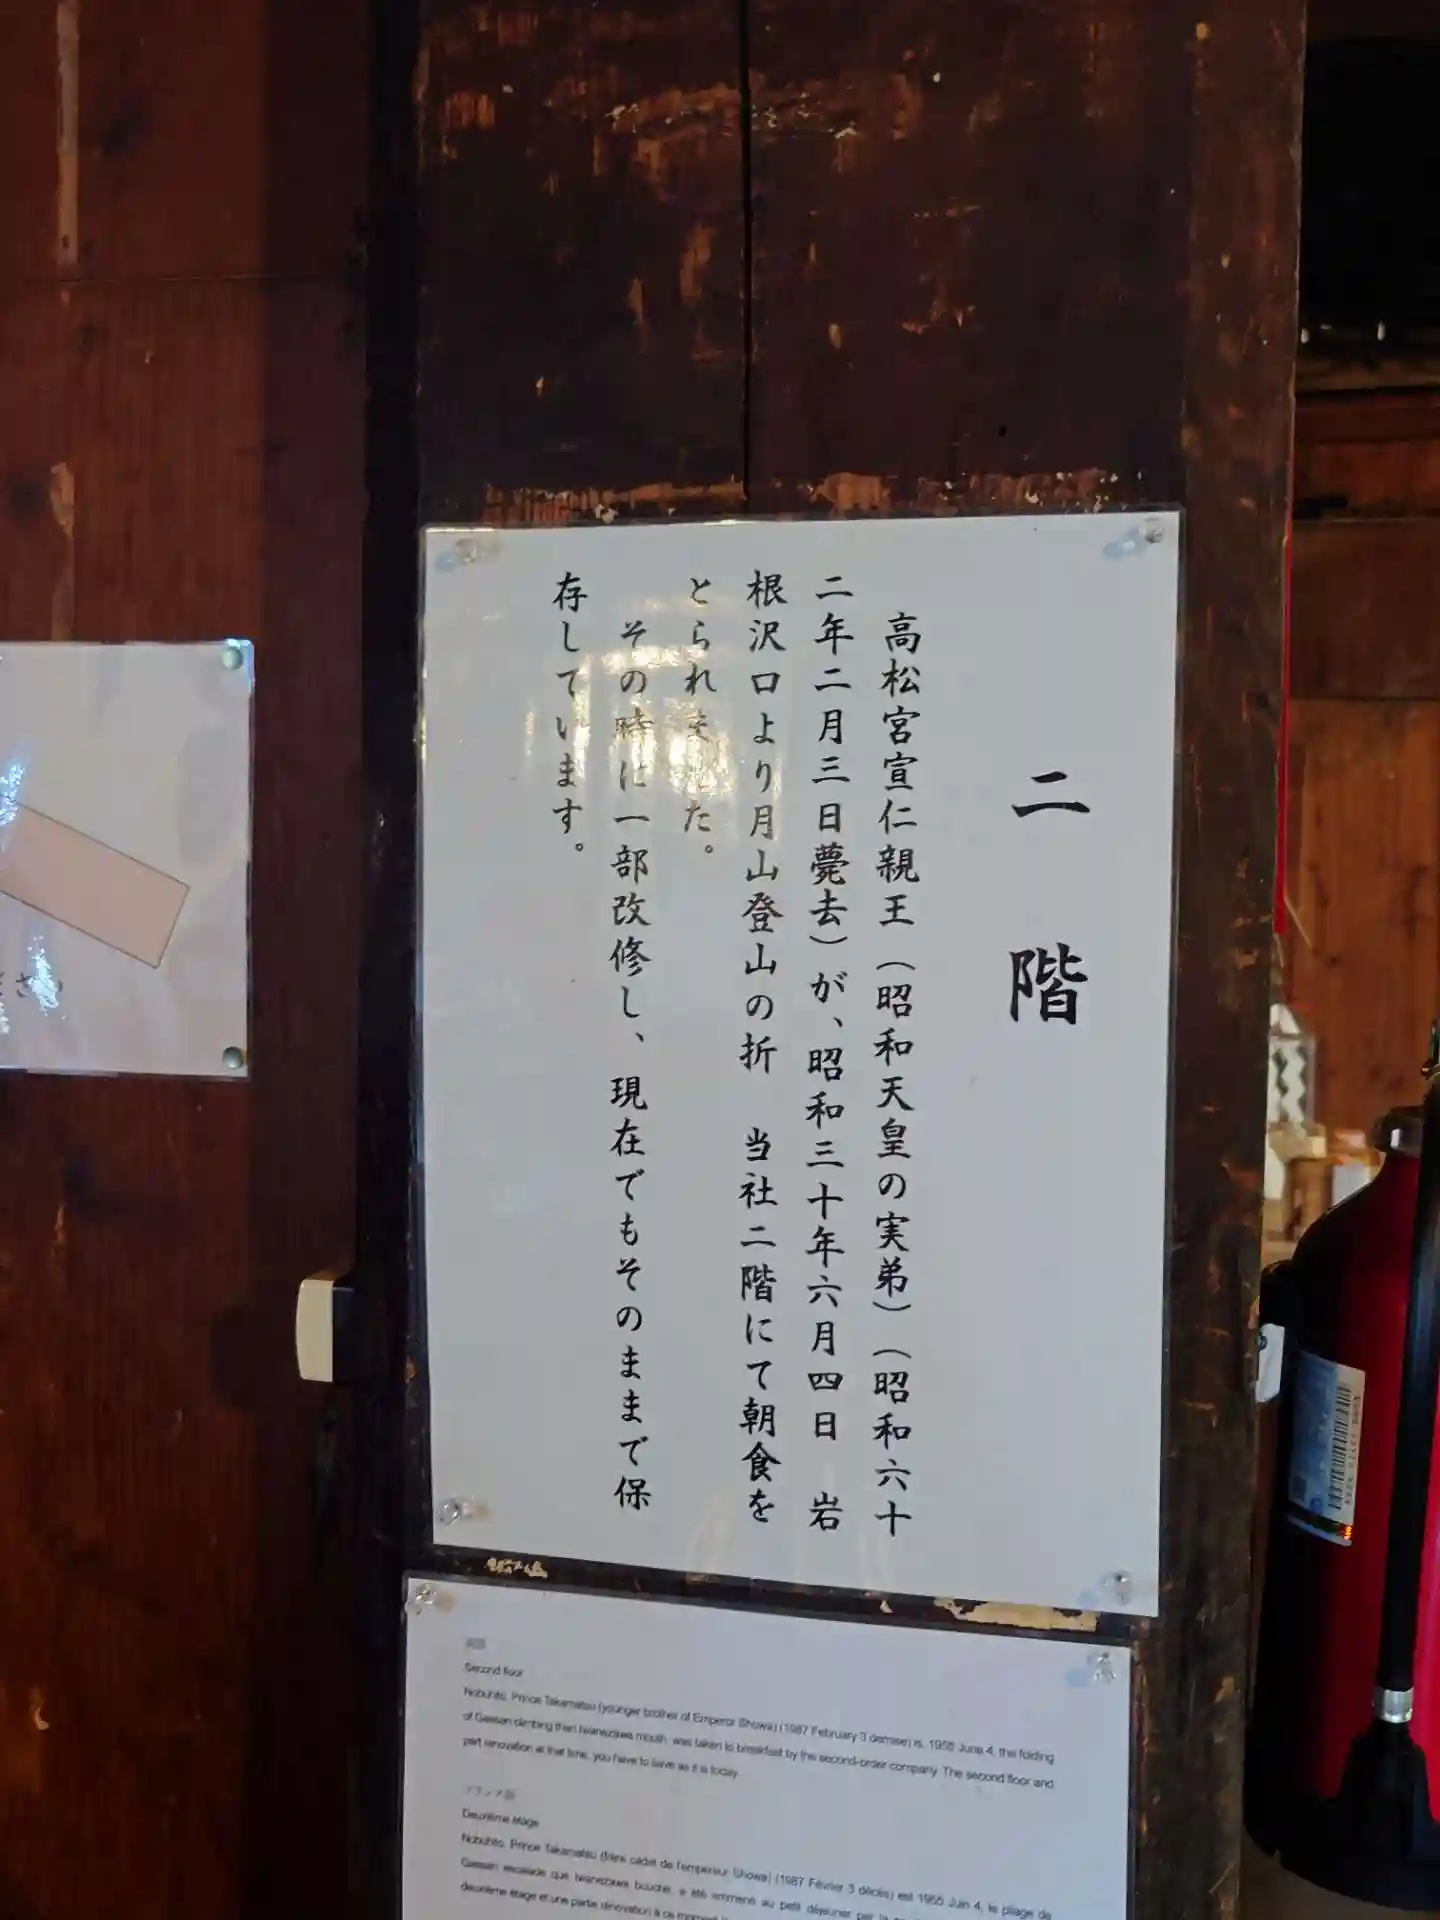 二階
高松宮宣仁親王（昭和天皇の実弟）（昭和六十
二年二月三日薨去）が、昭和三十年六月四日　岩
根沢口より月山登山の折　当社二階にて朝食を
とられました。
その時に一部改修し、現在でもそのままで保
存しています。
英語
Second floor
Nobuhito, Prince Takamatsu (younger brother of Emperor Showa) (1987 February 3 demise) is, 1955 June 4, the folding
of Gassan climbing than Iwanezawa mouth, was taken to breakfast by the second-order company. The second floor and
part renovation at that time, you have to leave as it is today.
フランス語
Deuxième étage
Nobuhito, Prince Takamatsu (frère cadet de l'empereur Showa) (1987 Février 3 décès) est 1955 Juin 4, le pliage de
Gassan escalade que Iwanezawa bouche, a été emmené au petit déjeuner par la
deuxième étage et une partie rénovation à ce moment